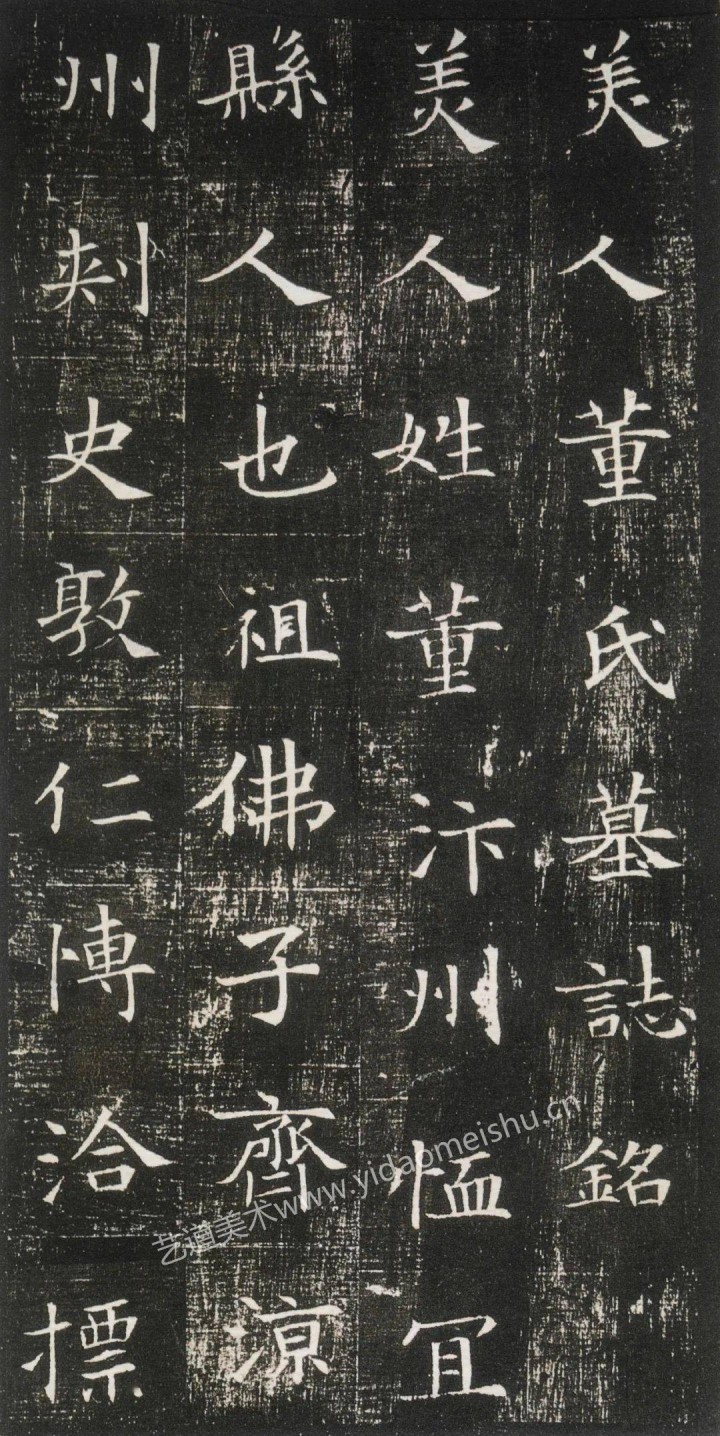 美人董氏墓誌銘
美人姓董汴州恤冝
縣人也祖佛子齊涼
州刾史敦仁愽洽標
艺道美术www.yidaomeishu.cn